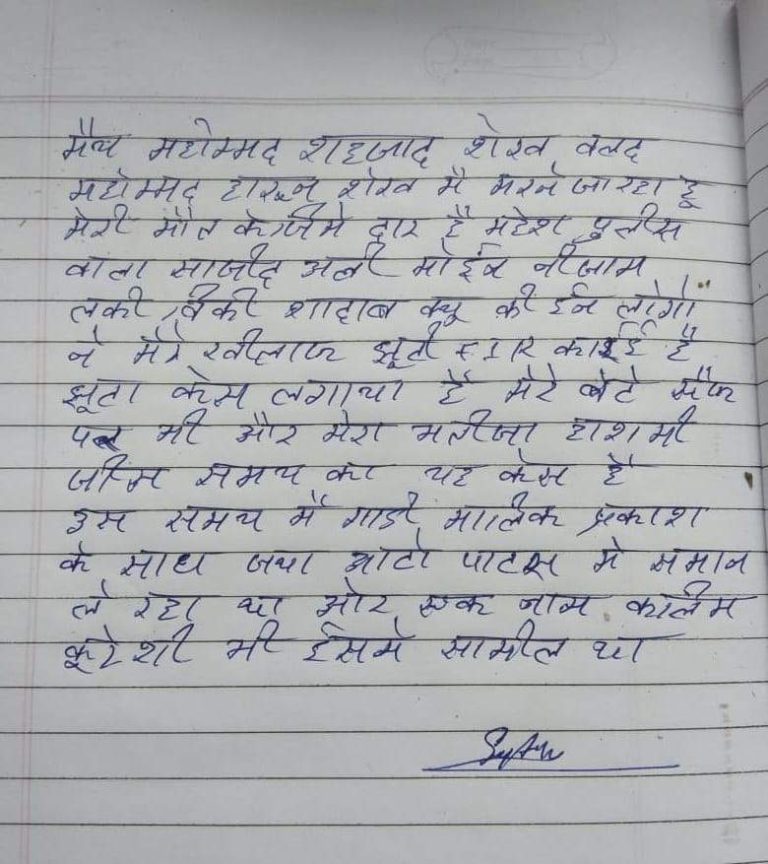 मैच महोम्मद शहजाद शेख वलद
महोम्मद हारून शेख मै मरने जा रहा हू
मेरी मौत के जिमे दार है महेश पुलीस
वाला साजीद अली मोईन नीजाम
लकी, विकी शादाब क्यू की ईन लोगो
ने मेरे खीलाफ झूटी FIR काईई है
झूटा केस लगाया है मेरे बेटे सैफ
पर भी और मेरा भतीजा हाशमी
जीस समय का यह केस है
इस समय मै गाडी मालिक प्रकाश
के साथ जया ओटो पाटस मे समान
ले रहा था ओर एक नाम कलिम
कूरेशी भी ईसमे सामील था